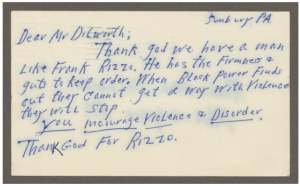 Sunbury PA
Dear Mr Dilworth;
Thank god we have a man
Like Frank Rizzo. He has the Firmness &
guts to keep order. When Black Power Finds
out they Cannot get a way with Violence
they will Stop.
You incourage Violence & Disorder.
Thank God For Rizzo.